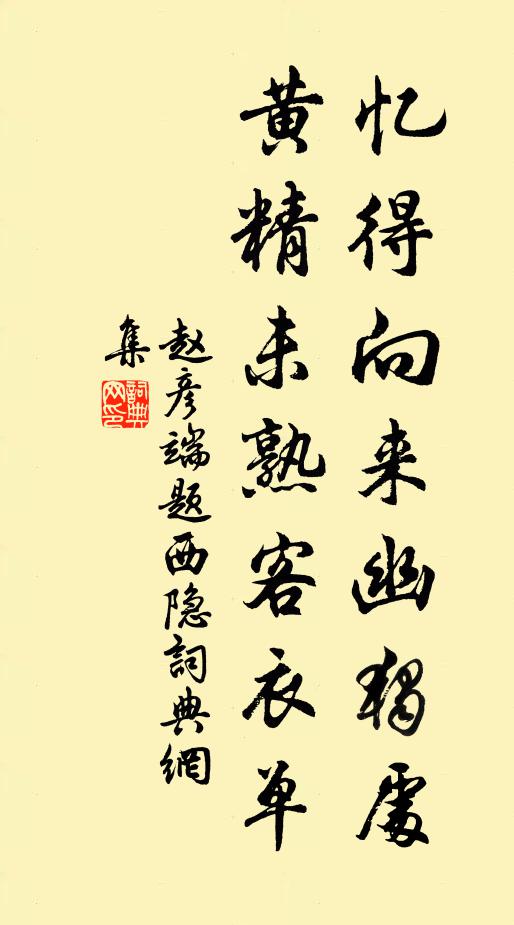 忆得向来幽独處
黄精未熟客衣单
赵彦端题西隐詞典網
集
詞典
网印